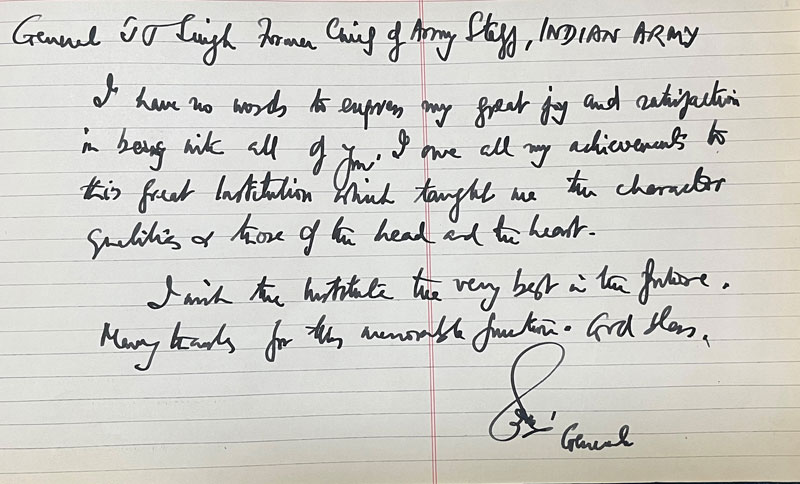 General J J Singh Former Chief of Army Staff, INDIAN ARMY
I have no words to express my great joy and satisfaction
in being with all of you. I owe all my achievements to
this great Institution which taught me the character
qualities & those of the head and the heart.
I wish the Institute the very best in the future.
Many thanks for this memorable function. God bless.
General